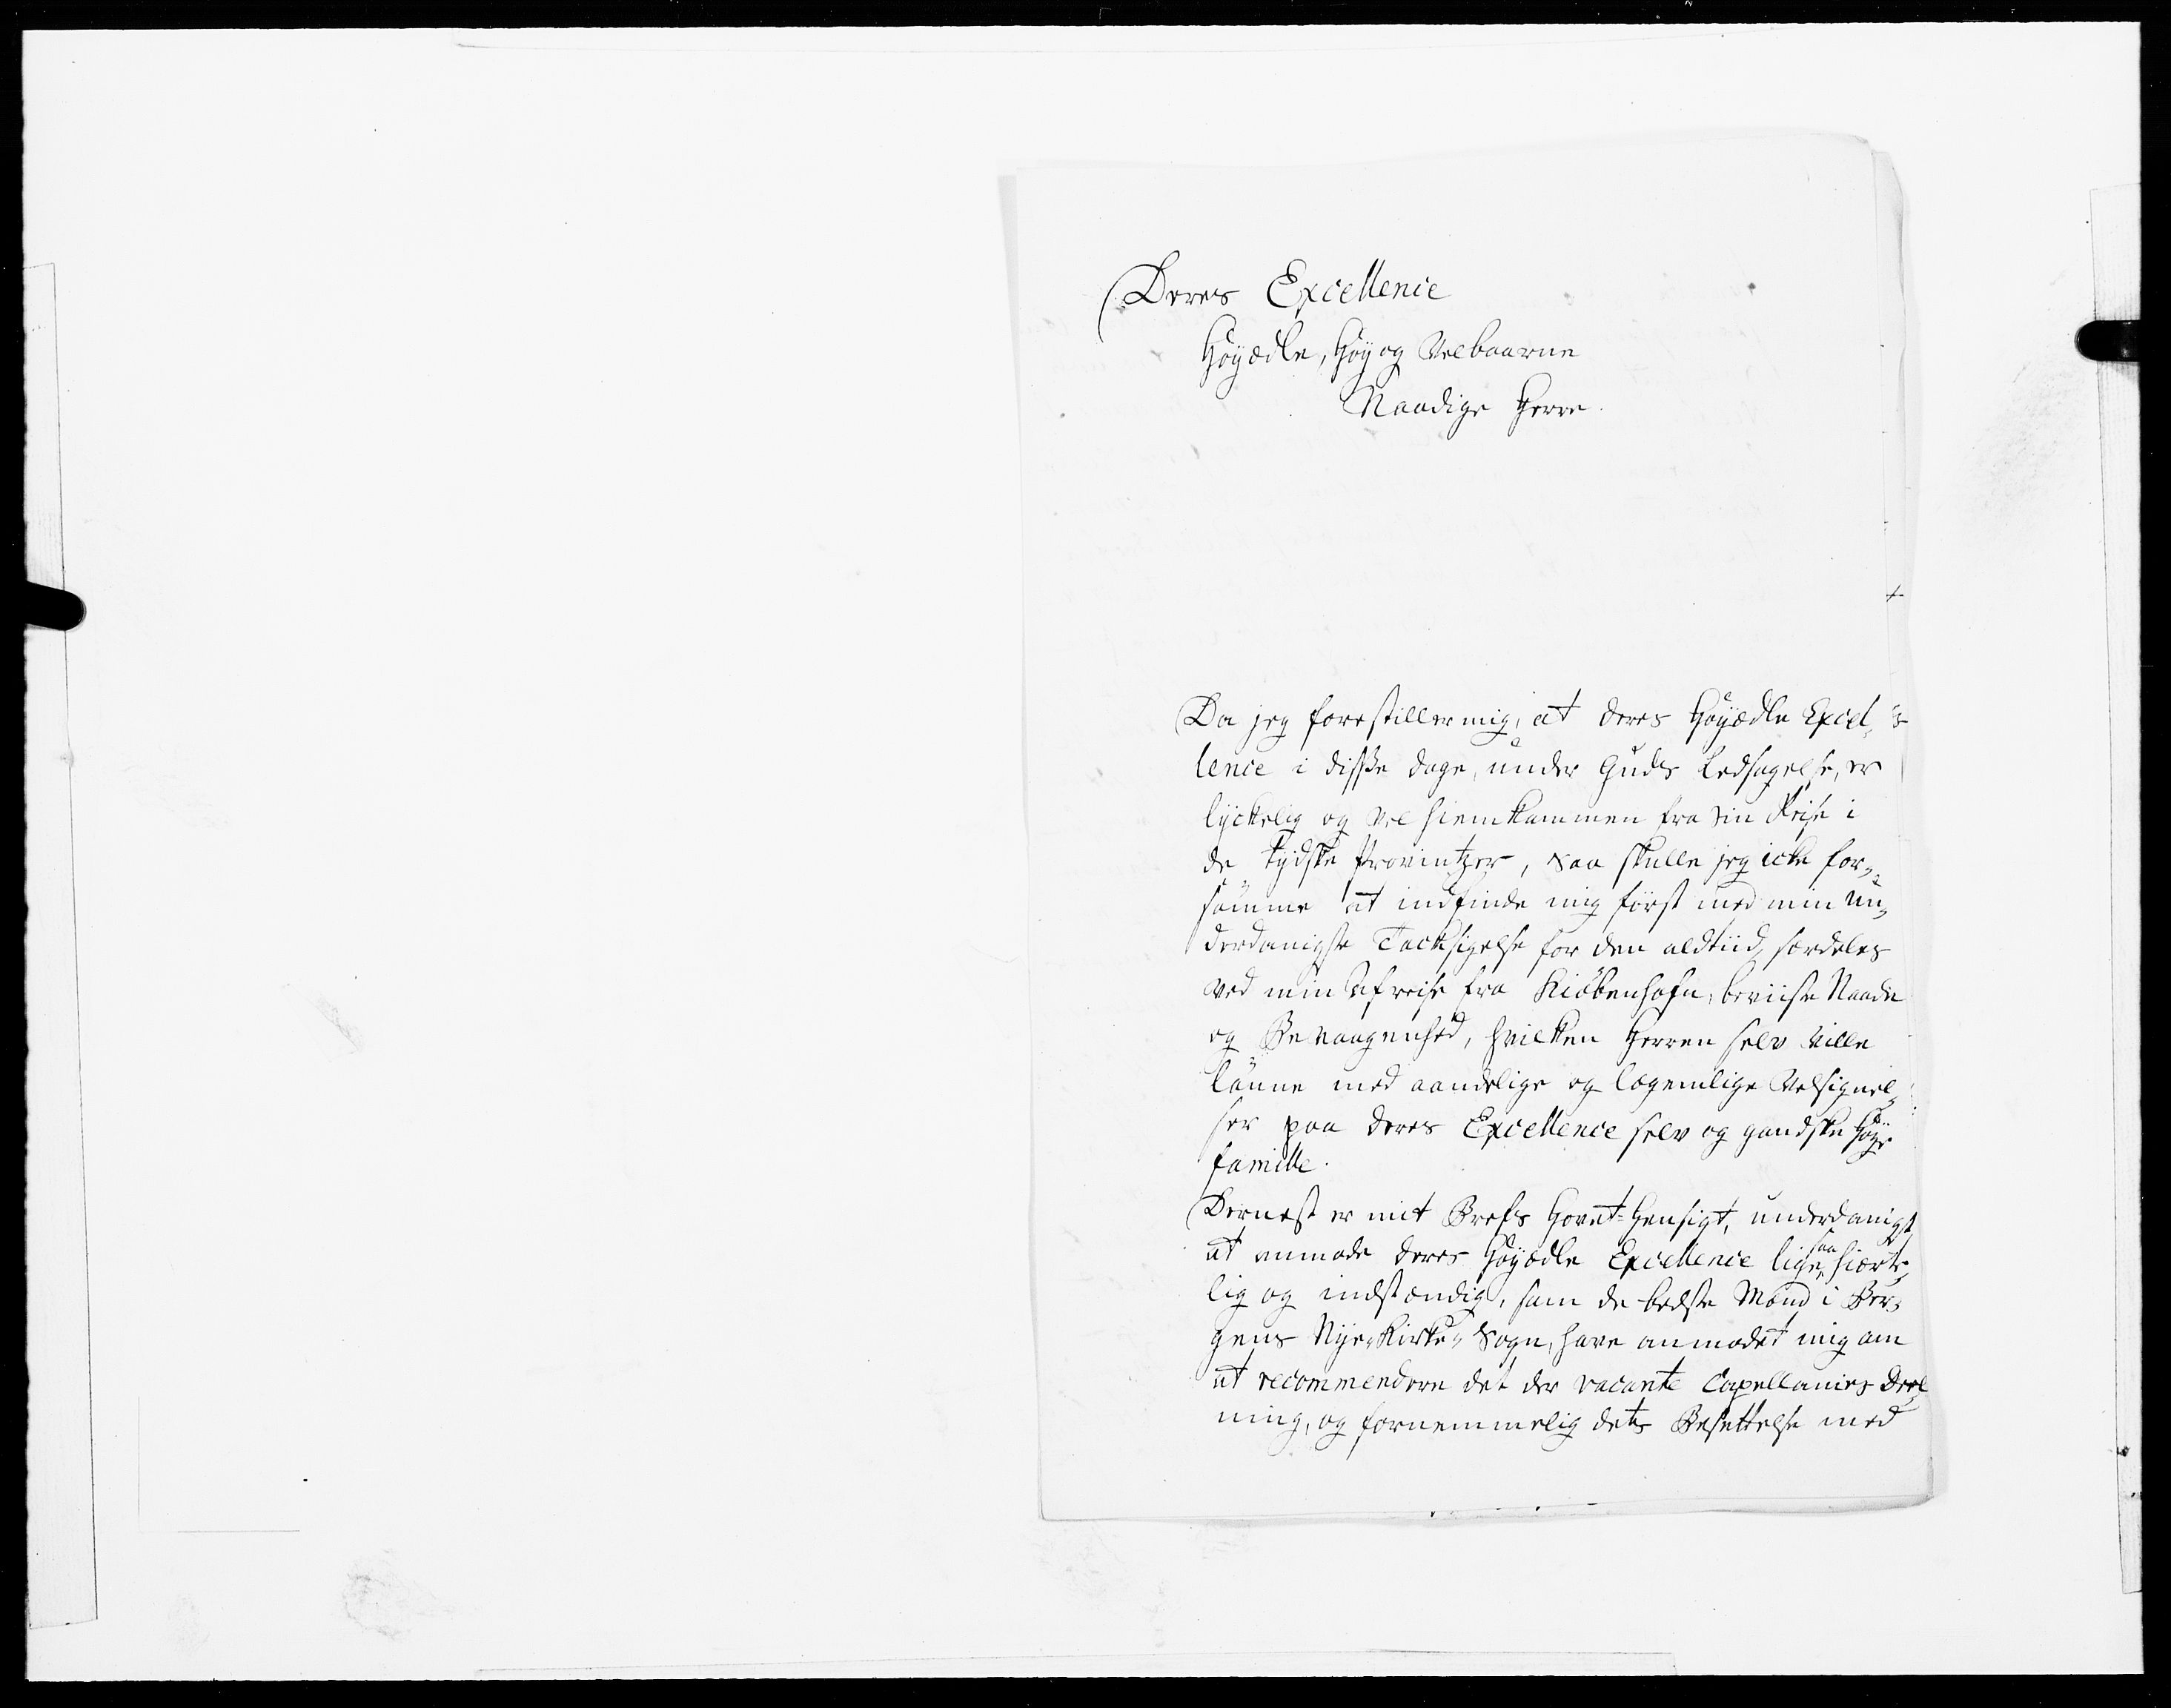 Deres Excellence
Höyædle, Höy og Velbaarne
Naadige Herre.
Da jeg forestiller mig, at Deres Höyædle Excel„
lence i disse Dage, under Guds Ledsagelse, er
lyckelig og vel hiemkommen fra Sin Reise i
de Tydske Provintzer, saa skulle jeg icke for„
sømme at indfinde mig først med min un„
derdanigste Tacksigelse for den aldtiid, særdeles
ved min Afreise fra Kiöbenhafn, beviiste Naade
og Bevaagenhed, hvilken Herren selv ville
lønne med aandelige og legemlige Velsignel„
ser paa Deres Excellence selv og gandske Höye
familie.
Dernæst er mit Brefs Hovet-Hensigt, underdanigst
at anmode Deres Höyædle Excellence lige saa hierte„
lig og indstændig, som de bedste Mænd i Ber„
gens Nye-Kirke-Sogn, have anmodet mig om
at recommendere det der vacante Capellanies Deel„
ning, og fornemmelig dets Besettelse med